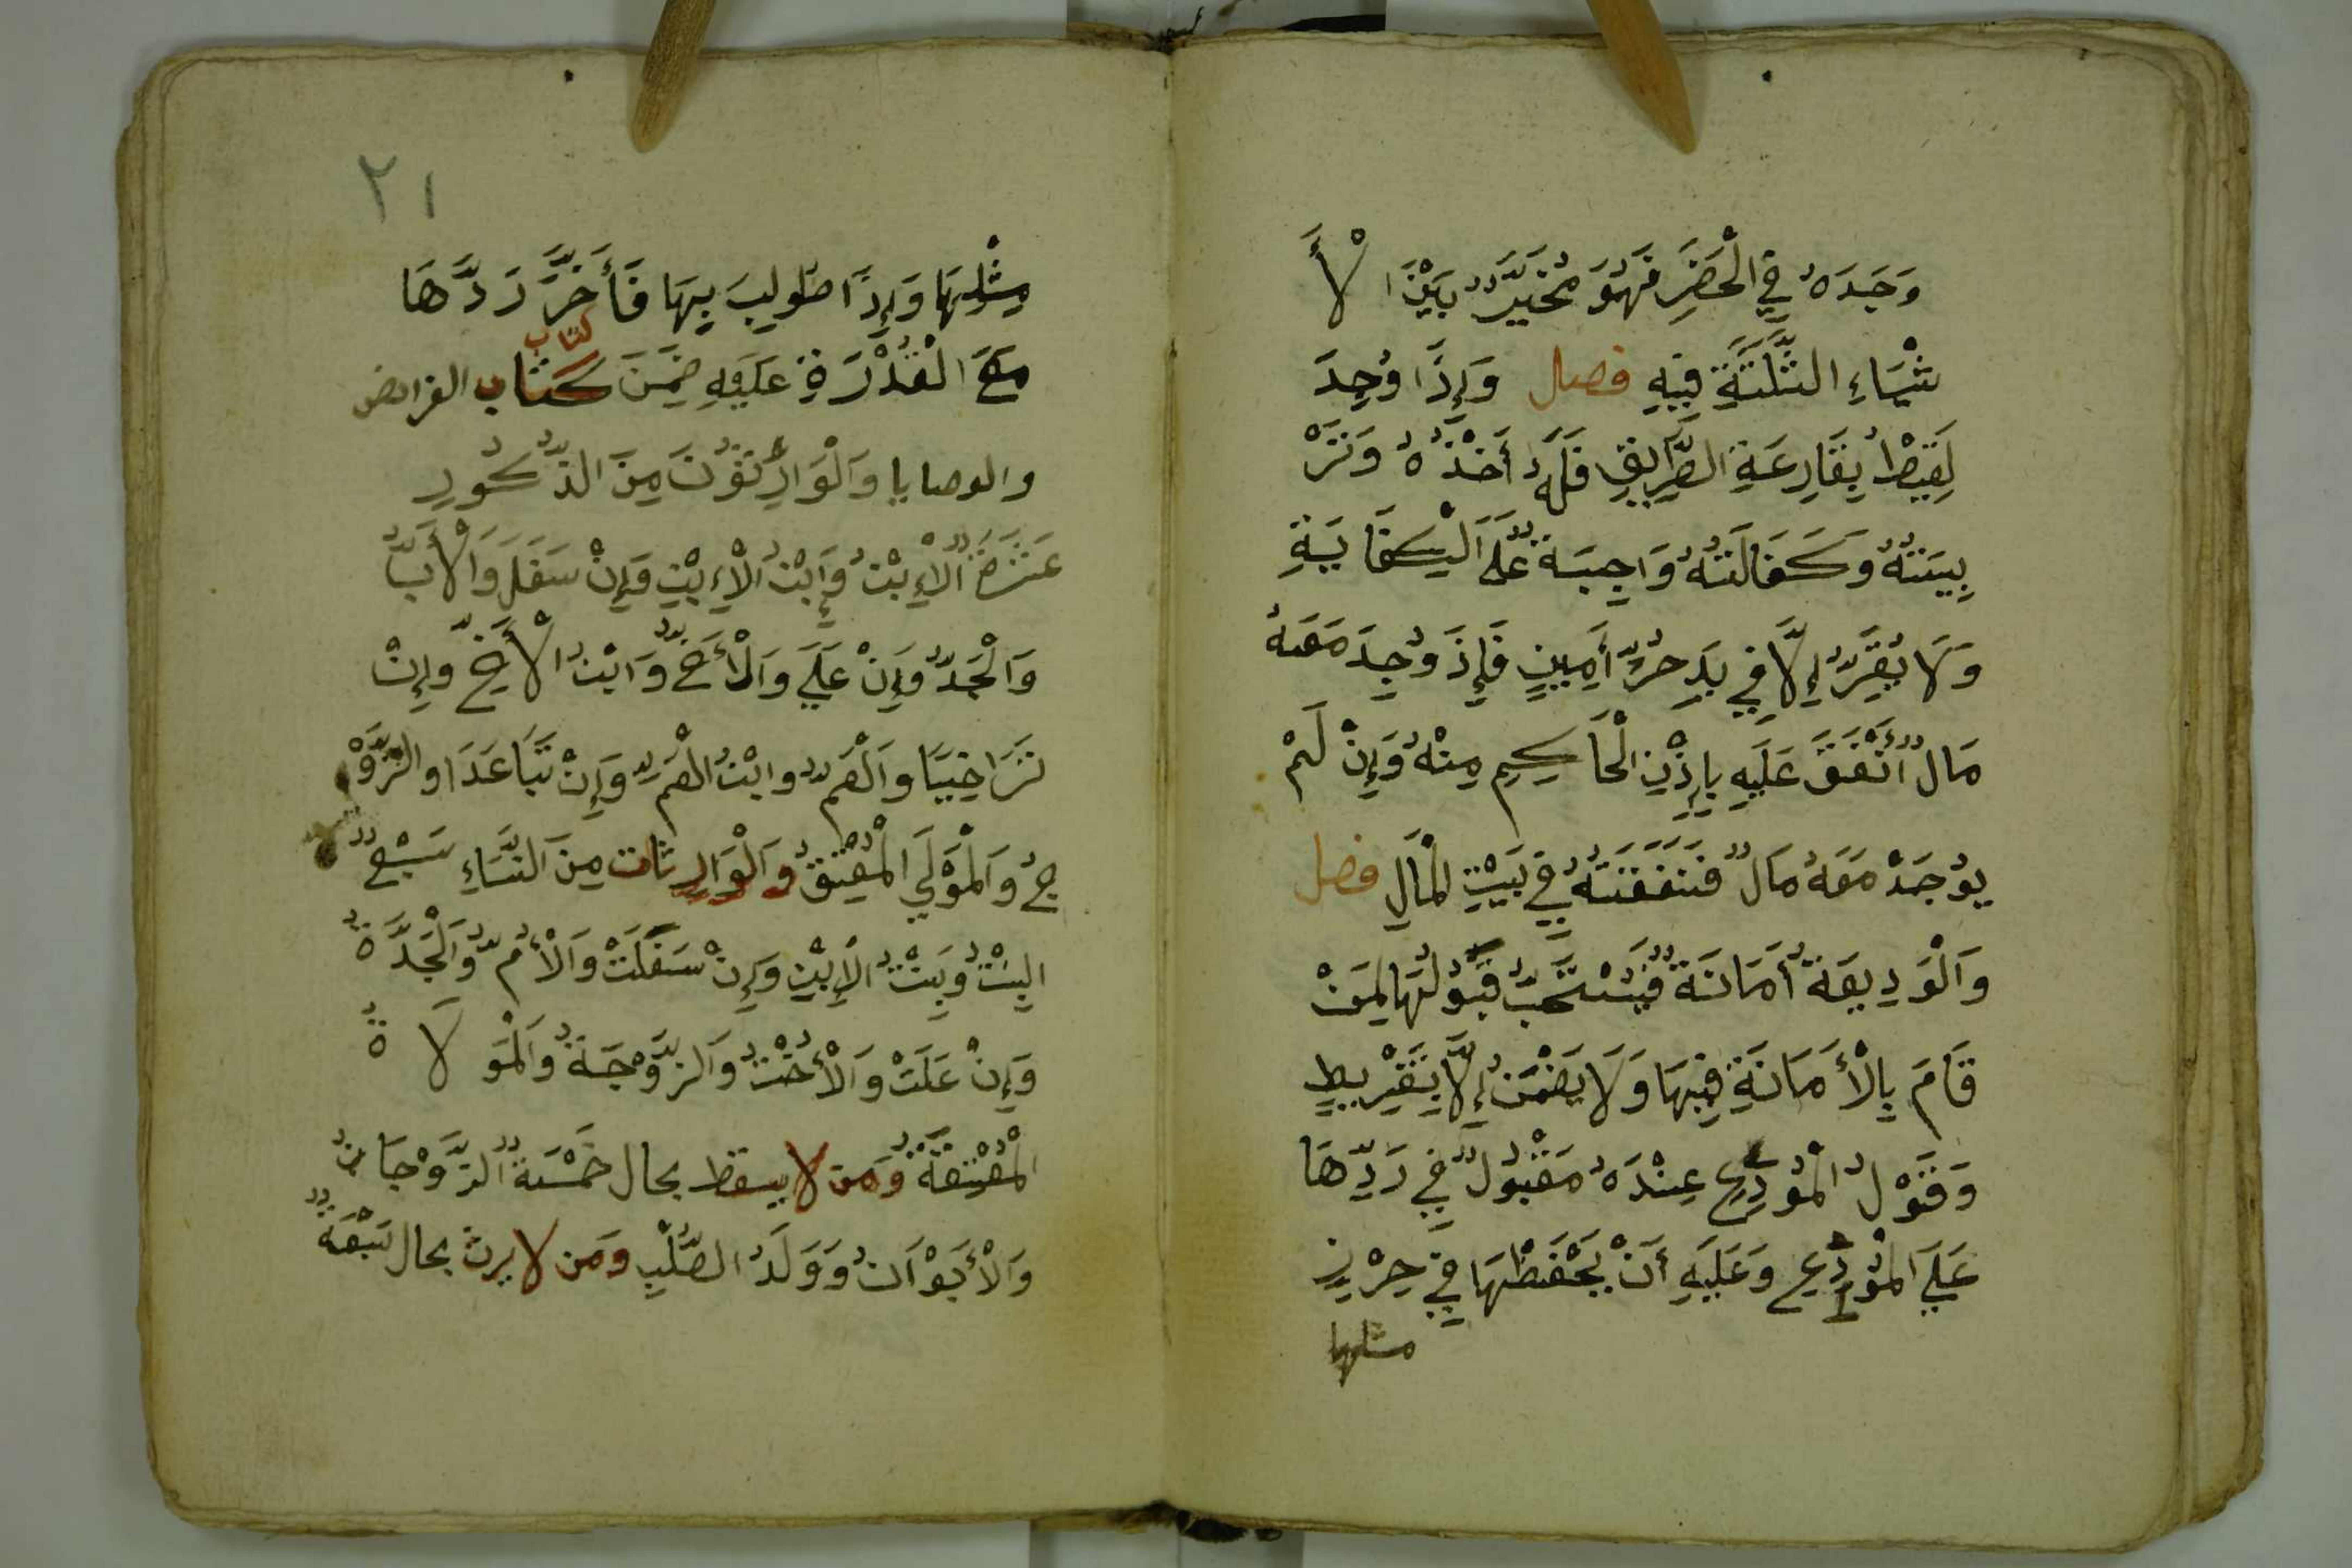 وَجَدَهُ فِي الْحَضَرِ فَهُوَ مُخَيَّرٌ بَيْنَ الْأَ
شْيَاءِ الثَّلَثَةِ فِيهِ فصل وَإِذَا وُجِدَ
لَقِيطٌ بِقَارِعَةِ الطَّرِيقِ فَلَهُ أَخْذُهُ وَتَرْ
بِيَتُهُ وَكَفَالَتُهُ وَاجِبَةٌ عَلَى الْكِفَايَةِ
وَلَا يُقَرُّ إِلَّا فِي يَدِ حُرٍّ أَمِينٍ فَإِذَ وُجِدَ مَعَهُ
مَالٌ أَنْفَقَ عَلَيْهِ بِإِذْنِ الْحَاكِمِ مِنْهُ وَإِنْ لَمْ
يُوْجَدْ مَعَهُ مَالٌ فَنَفَقَتُهُ فِي بَيْتِ الْمَالِ فصل
وَالْوَدِيعَةُ أَمَانَةٌ فَيُسْتَحَبُّ قَبُوْلُهَا لِمَنْ
قَامَ بِالْأَمَانَةِ فِيهَا وَلَا يَضْمَنُ إِلَّا بِتَفْرِيطٍ
وَقَوْلُ الْمُودِعِ عِنْدَهُ مَقْبُولٌ فِي رَدِّهَا
عَلَى الْمُوْدِعِ وَعَلَيْهِ أَنْ يَحْفَظْهَا فِي حِرْزِ
مثلها
٢١
مِثْلِهَا وَإِذَا طُولِبَ بِهَا فَأَخَّرَ رَدَّهَا
مَعَ الْقُدْرَةِ عَلَيْهِ ضَمِنَ كتاب كتاب الفرائض
والوصايا وَالْوَارِثُونَ مِنَ الذُّكُورِ
عَشَرَةٌ الْإِبْنُ وَإِبْنُ الْإِبْنِ وَإِنْ سَفَلَ وَالْأَبُّ
وَالْجَدُّ وَإِنْ عَلَي وَالْأَخُّ وَابْنُ الْأَخِّ وإِنْ
تَرَاخَيَا وَالْعَمُّ وابْنُ الْعَمِّ وَإِنْ تَبَاعَدَا والزَّوْ
جُ وَالْمَوْلَي الْمُعْتِقُ وَالْوَارِثَات مِنَ النِّسَاءِ سَبْعٌ
الْبِنْتُ وَبِنْتُ الْإِبْنِ وَإِنْ سَفَلَتْ وَالْأُمُّ وَالْجَدَّةُ
وَإِنْ عَلَتْ وَالْأُخْتُ وَالزَّوْجَةُ وَالْمَوْلَاةُ
الْمُعْتِقَةُ وَمَن لا يسقط بحال خَمْسَةٌ الزَّوْجَانُ
وَالْأَبَوْانُ وَوَلَدُ الصُّلْبِ ومَن لا يرث بحال سَبْعَةٌ